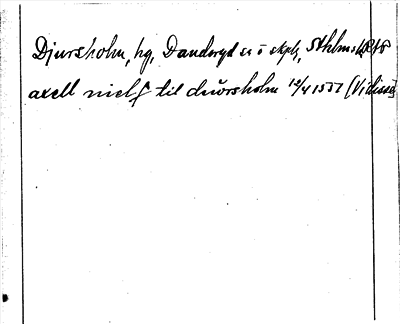 Djursholm, hg, Danderyds sn o skplg, Sthlms
axell nielß til diwrsholm 12/4 1551 (Vidisse)